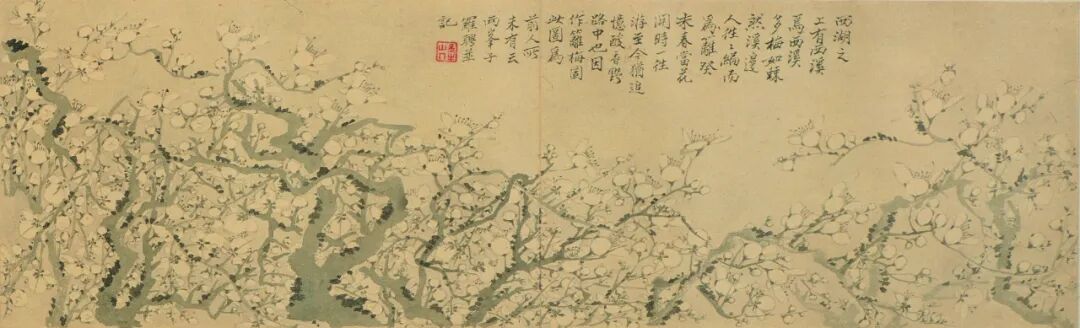 西湖之
上有西溪
焉西溪
多梅如棘
然溪邊
人往〻編而
為籬癸
未春當花
開時一往
游至今猶追
憶酸香野
路中也因
作籬梅圖
此圖為
前人所
未有云
兩峯子
羅聘並
記